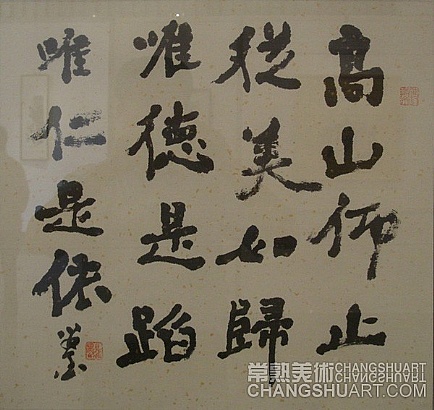 高山仰止
從美如歸
惟德是蹈
唯仁是依
常熟美術 CHANGSHUART
CHANGSHUART.COM